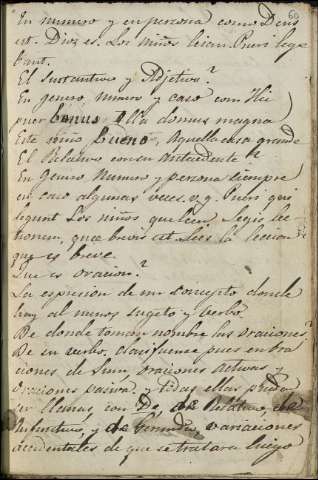 60
En numero y en persona como Deus
est. Dios es. Los niños leian Pueri lege
bant.
El Sustantivo y Adjetivo?
En genero, numero y caso com Hic
puer bonus Illa domus magna
Este niño bueno, Aquella casa grande
El Relativo con su antecedente?
En Genero Numero y persona siempre
en caso algunas veces. v. g. Pueri qui
legunt Los niños que leen Legis lec
tionem, quae brevis est lees la leccion
que es breve.
Que es oracion?
La espresion de un concepto donde
hay al menos sugeto y verbo.
De donde toman nombre las oraciones?
De su verbo, clasifícanse pues en ora
ciones de Sum, oraciones activas y
oraciones pasivas. y todas ellas pueden
ser llanas, con De, de Relativo, de
Infinitivo, y de Gerundio, variaciones
accidentales de que se tratara luego